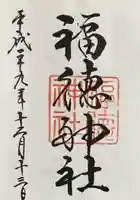 福徳神社
平成二十九年十二月十三日